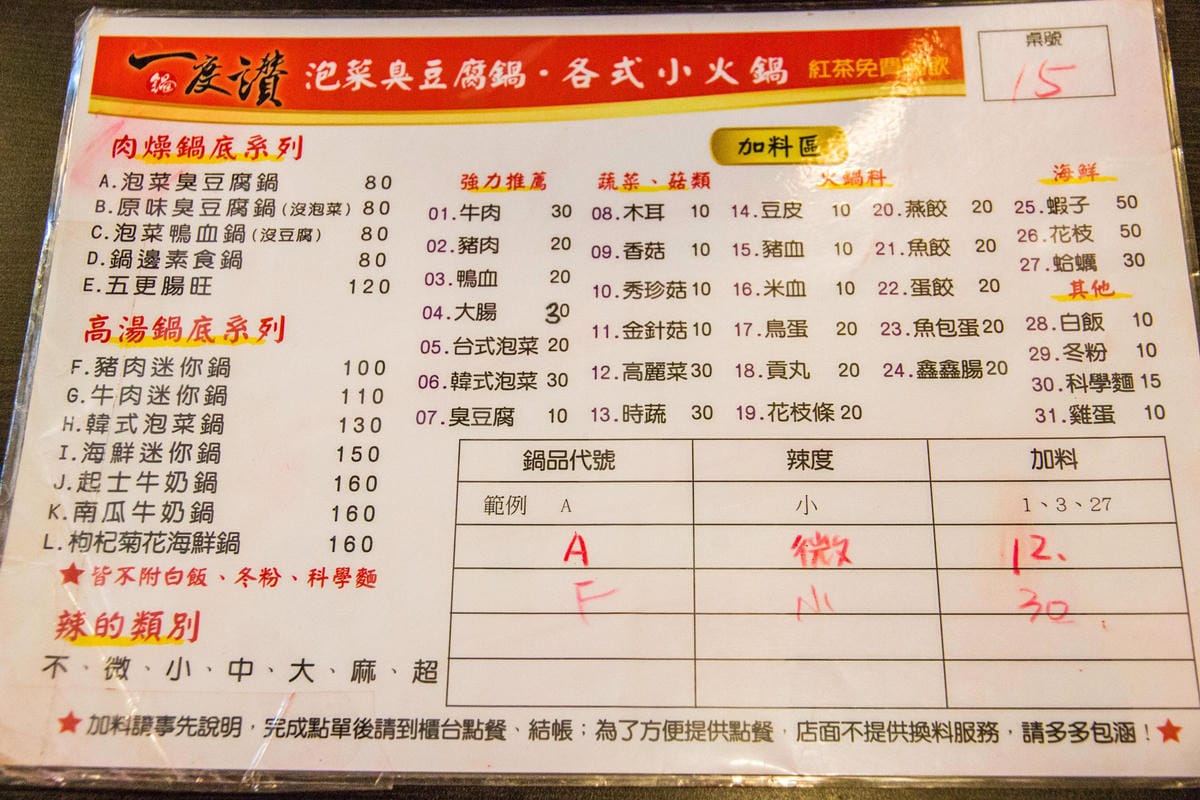 一鍋度讚 泡菜臭豆腐鍋·各式小火鍋 紅茶免費
桌號
15
肉燥鍋底系列
A.泡菜臭豆腐鍋 80
B.原味臭豆腐鍋(沒泡菜) 80
C.泡菜鴨血鍋(沒豆腐) 80
D.鍋邊素食鍋 80
E.五更腸旺 120
高湯鍋底系列
F.豬肉迷你鍋 100
G.牛肉迷你鍋 110
H.韓式泡菜鍋 130
I.海鮮迷你鍋 150
J.起士牛奶鍋 160
K.南瓜牛奶鍋 160
L.枸杞菊花海鮮鍋 160
★皆不附白飯、冬粉、科學麵
辣的類別
不、微、小、中、大、麻、超
加料區
強力推薦
01.牛肉 30
02.豬肉 20
03.鴨血 20
04.大腸 30
05.台式泡菜 20
06.韓式泡菜 30
07.臭豆腐 10
蔬菜、菇類
08.木耳 10
09.香菇 10
10.秀珍菇 10
11.金針菇 10
12.高麗菜 30
13.時蔬 30
火鍋料
14.豆皮 10
15.豬血 10
16.米血 10
17.鳥蛋 20
18.貢丸 20
19.花枝條 20
20.燕餃 20
21.魚餃 20
22.蛋餃 20
23.魚包蛋 20
24.鑫鑫腸 20
海鮮
25.蝦子 50
26.花枝 50
27.蛤蠣 30
其他
28.白飯 10
29.冬粉 10
30.科學麵 15
31.雞蛋 10
鍋品代號 辣度 加料
範例 A 小 1、3、27
A 微 12、
F 小 30
★加料請事先說明，完成點單後請到櫃台點餐、結帳；為了方便提供點餐，店面不提供換料服務，請多多包涵！★